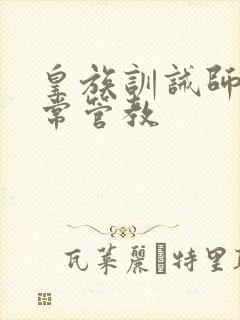 皇族訓誡師
常管教
瓦萊麗 特里